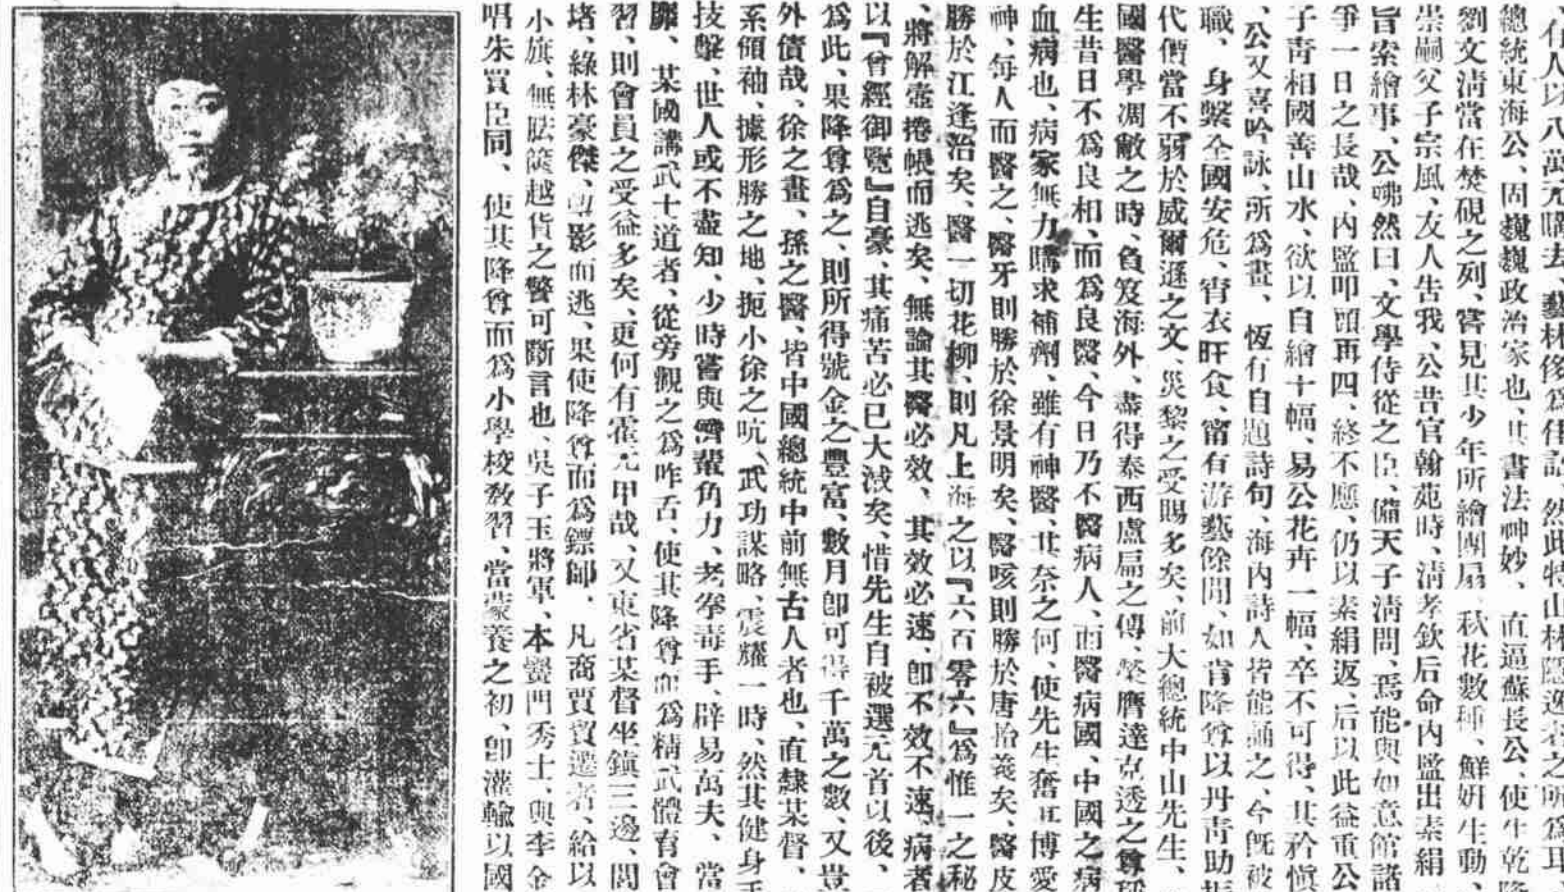 、有人以八萬元購去、藝林傳爲佳話、然此特山林隱逸者之所爲耳、
總統東海公、固巍巍政治家也、其書法神妙、直逼蘇長公、使生乾隆
劉文淸當在焚硯之列、嘗見其少年所繪團扇、秋花數種、鮮妍生動
崇嗣父子宗風、友人吿我、公昔官翰苑時、淸孝欽后命內監出素絹
旨索繪事、公咈然曰、文學侍從之臣、備天子淸問、焉能與如意館諸
爭一日之長哉、內監叩頭再四、終不應、仍以素絹返、后以此益重公
子靑相國善山水、欲以自繪十幅、易公花卉一幅、卒不可得、其矜愼
、公又喜吟詠、所爲畫、恆有自題詩句、海內詩人皆能誦之、今旣被
職、身繫全國安危、宵衣旰食、甯有游藝餘閒、如肯降尊以丹靑助振
代價當不弱於威爾遜之文、災黎之受賜多矣、前大總統中山先生、
國醫學凋敝之時、負笈海外、盡得泰西盧扁之傳、榮膺達克透之尊稱
生昔日不爲良相、而爲良醫、今日乃不醫病人、而醫病國、中國之病
血病也、病家無力購求補劑、雖有神醫、其奈之何、使先生奮其博愛
神、每人而醫之、醫牙則勝於徐景明矣、醫咳則勝於唐拾義矣、醫皮
勝於江逢治矣、醫一切花柳、則凡上海之以『六百零六』爲惟一之秘
、將解壺捲帳而逃矣、無論其醫必效、其效必速、卽不效不速、病者
以『曾經御覽』自豪、其痛苦必已大減矣、惜先生自被選元首以後、
爲此、果降尊爲之、則所得號金之豐富、數月卽可得千萬之數、又豈
外債哉、徐之畫、孫之醫、皆中國總統中前無古人者也、直隸某督、
系領袖、據形勝之地、扼小徐之吭、武功謀略、震耀一時、然其健身手
技擊、世人或不盡知、少時嘗與儕輩角力、老拳毒手、辟易萬夫、當
腳、某國講武士道者、從旁觀之爲咋舌、使其降尊而爲精武體育會
習、則會員之受益多矣、更何有霍元甲哉、又東省某督坐鎭三邊、閭
堵、綠林豪傑、剪影而逃、果使降尊而爲鏢師、凡商賈貿遷者、給以
小旗、無胠篋越貨之警可斷言也、吳子玉將軍、本黌門秀士、與李金
唱朱買臣同、使其降尊而爲小學校敎習、當蒙養之初、卽灌輸以國